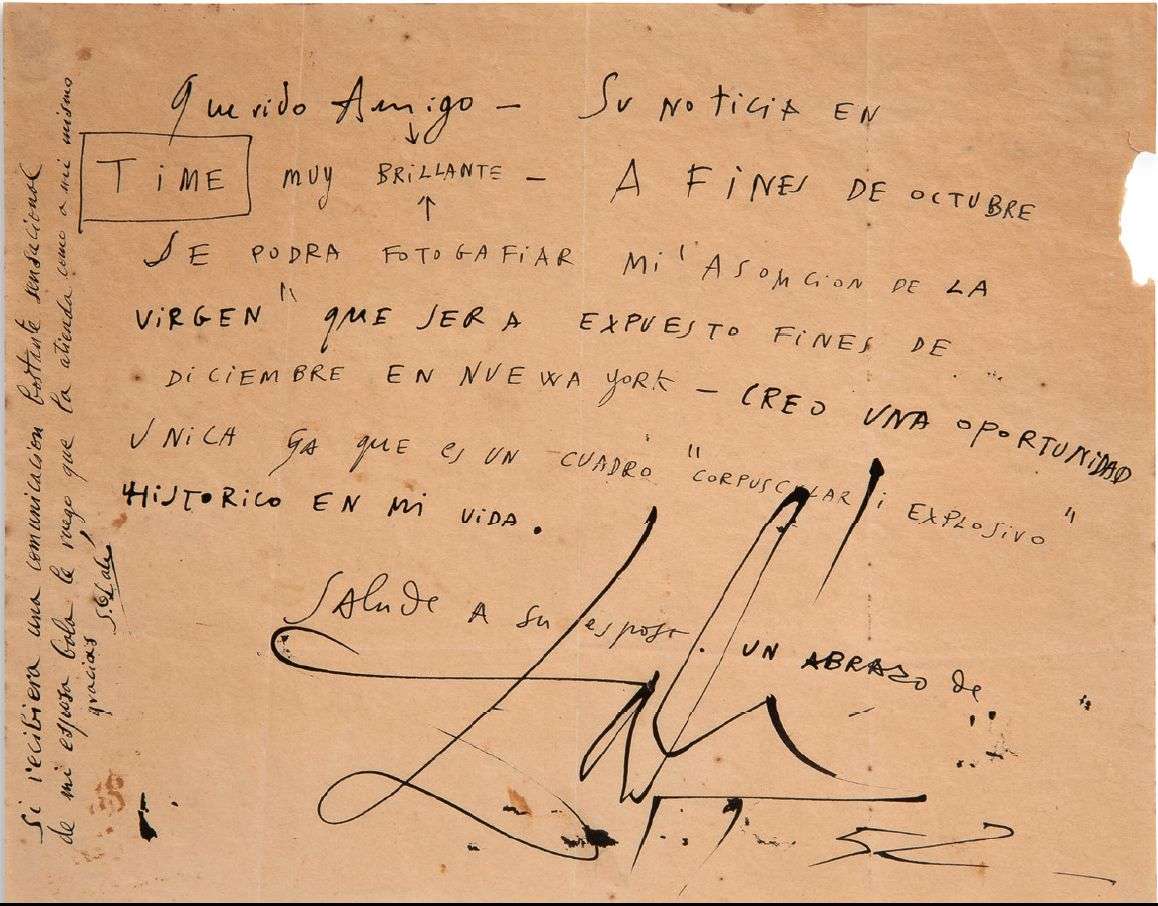 Querido Amigo — Su NOTICIA EN
TiME MUY BRiLLANTE — A FiNES DE OCTUBRE
SE PODRA FOTOGAFiAR Mi "ASOMCION DE LA
ViRGEN" QUE SERA EXPUESTO FiNES DE
DiCiEMBRE EN NUEWA YORK — CREO UNA OPORTUNiDAD
UNiCA YA QUE ES UN CUADRO "CORPUSCULAR i EXPLOSiVO"
HiSTORiCO EN Mi ViDA.
SAlude A su esposa. UN ABRAZO de
Dali
1952
Si recibiera una comunicacion bastante sensacional
de mi esposa Gala le ruego que la atienda como a mi mismo
gracias S. Dali